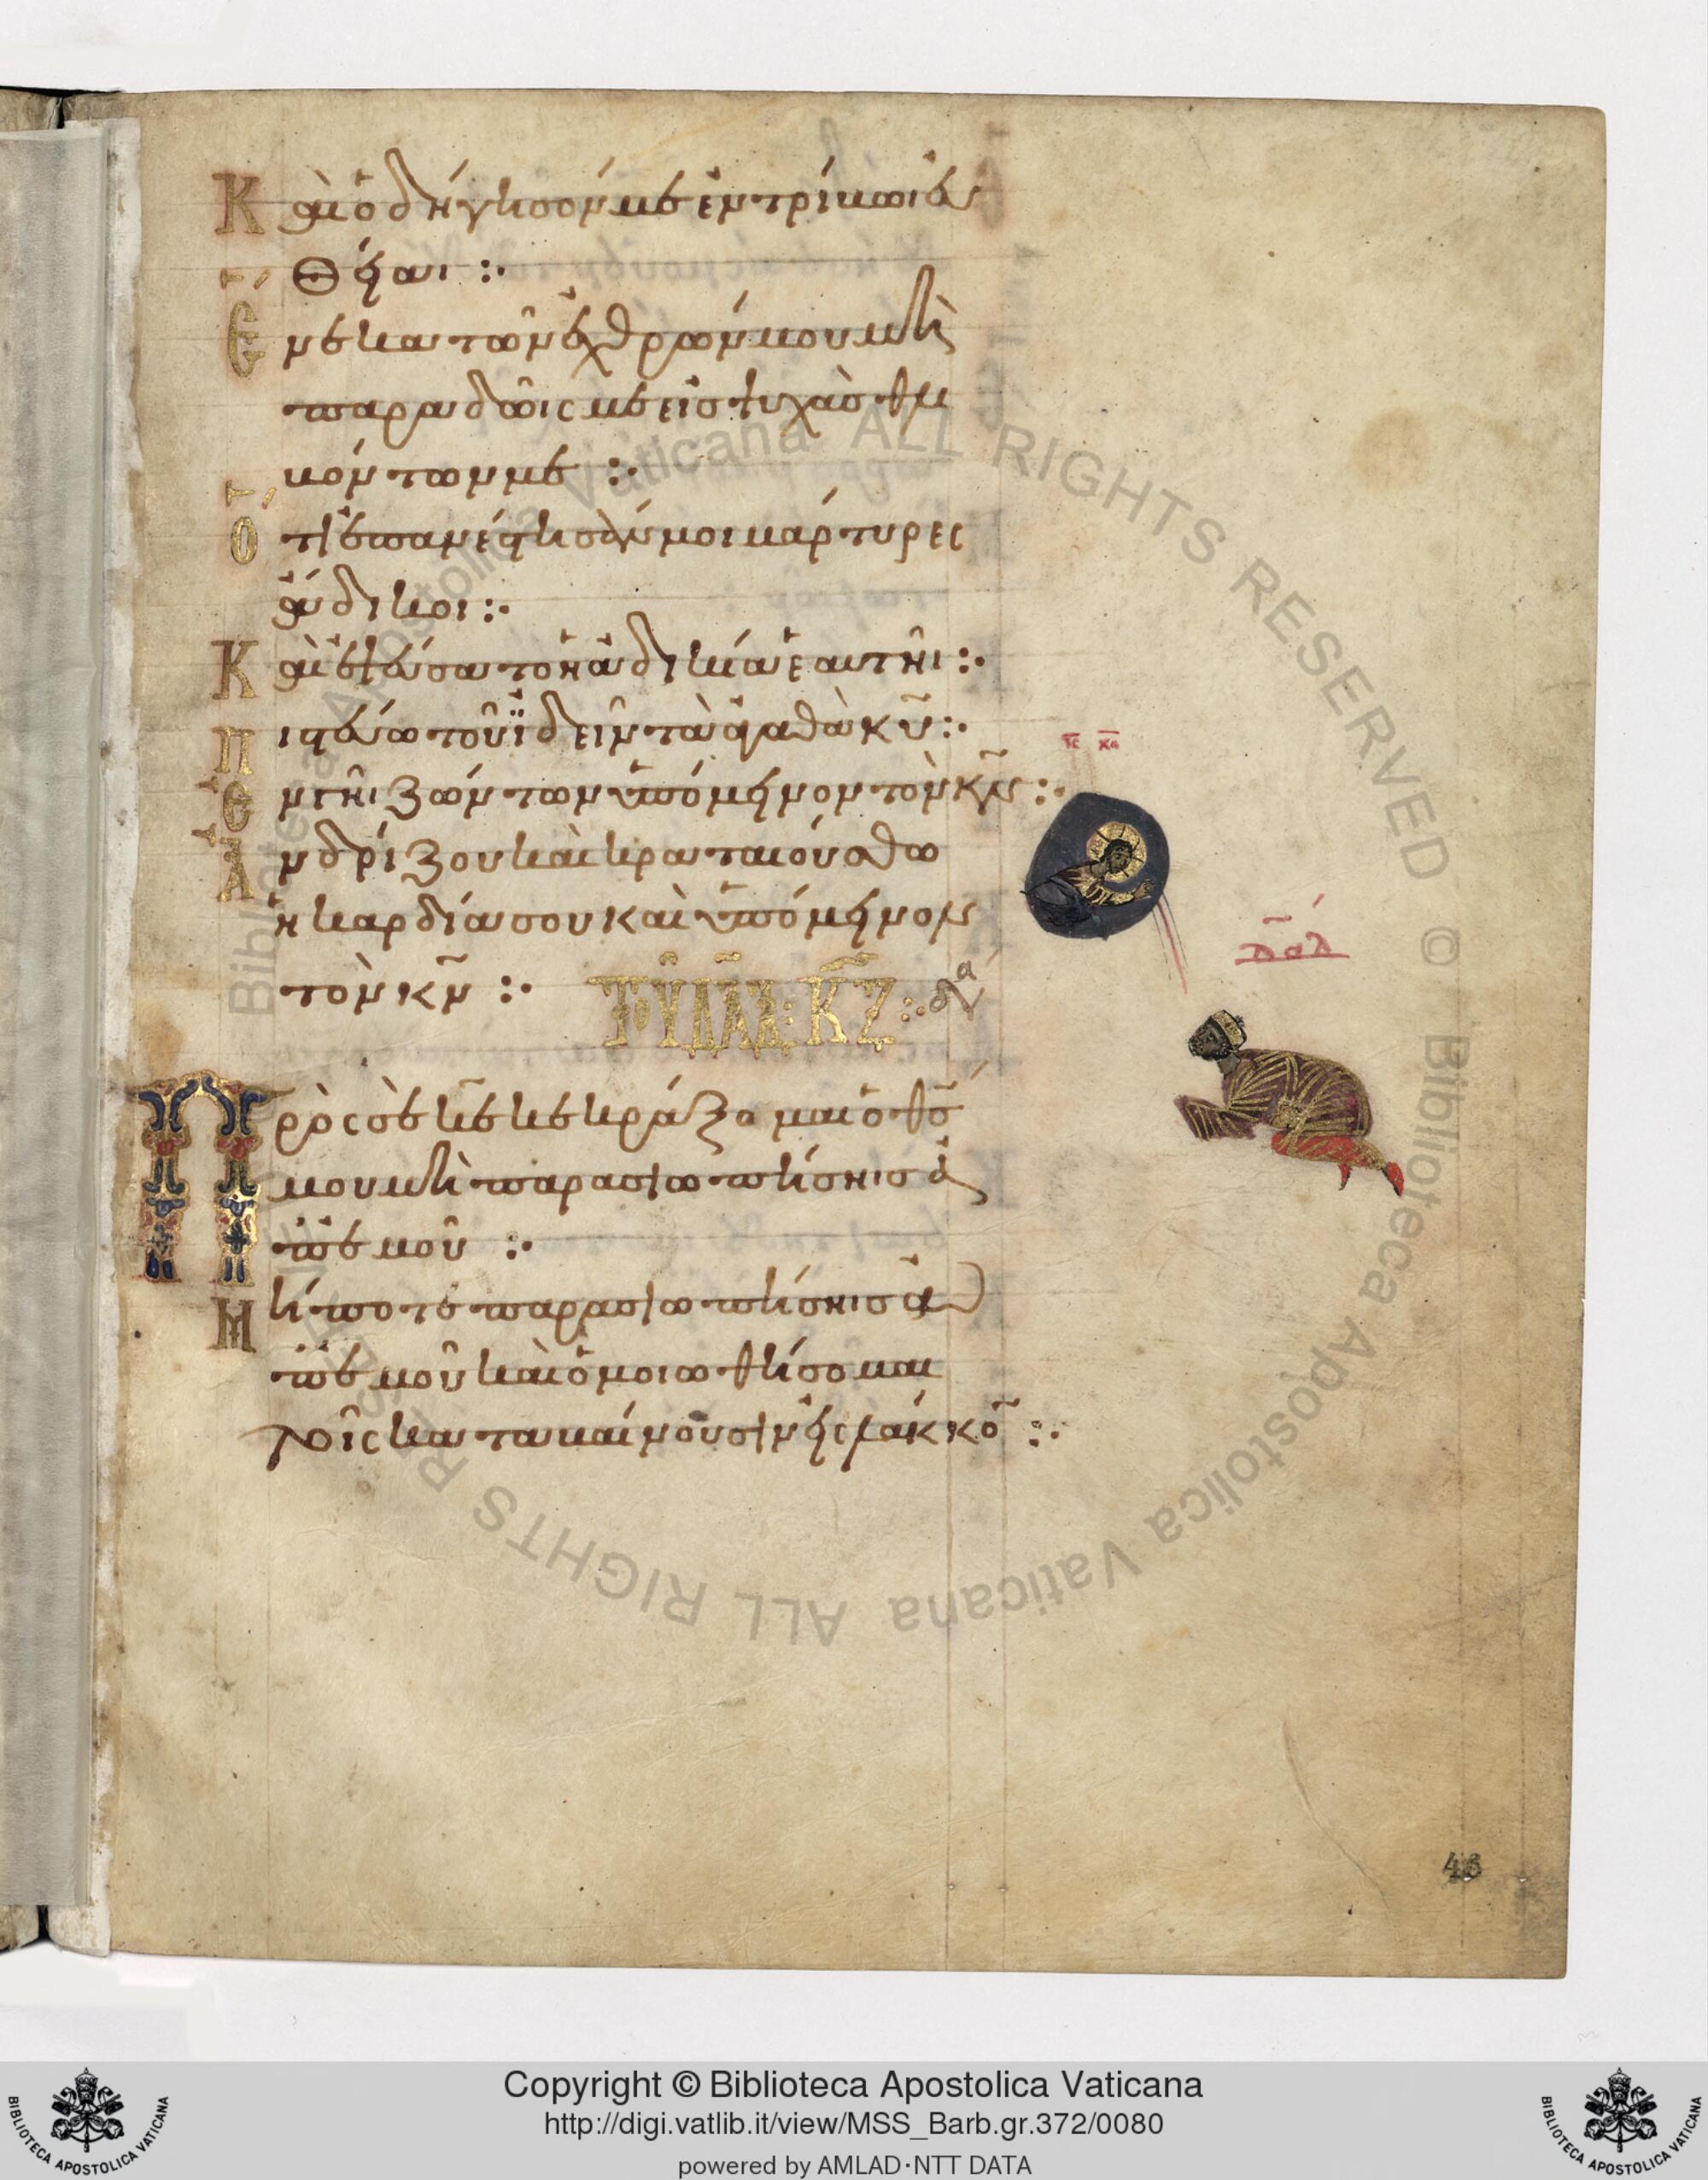 Καὶ ὁδήγησόν με ἐν τρίβωι εὐ
θείαι :·
Ἕνεκα τῶν ἐχθρῶν μου μὴ
παραδῶις με εἰς ψυχὰς θλι
βόντων με :·
Ὅτι ἐπανέστησάν μοι μάρτυρες
ἄδικοι :·
Καὶ ἐψεύσατο ἡ ἀδικία ἑαυτῆι :·
Πιστεύω τοῦ ἰδεῖν τὰ ἀγαθὰ κ̅υ̅ :·
Ἐν γῆι ζώντων ὑπόμεινον τὸν κ̅ν̅ :·
Ἀνδρίζου καὶ κραταιούσθω
ἡ καρδία σου καὶ ὑπόμεινον
τὸν κ̅ν̅ :· ΤΟΥ ΔΑΔ : ΚΖ :·
Πρὸς σὲ κ̅ε̅ κεκράξομαι ὁ θ̅ς̅
μου μὴ παρασιωπήσηις ἀ
π' ἐμοῦ :·
Μήποτε παρασιωπήσηις ἀ
π' ἐμοῦ καὶ ὁμοιωθήσομαι
τοῖς καταβαίνουσιν εἰς λάκκον :·
ι̅ς̅ χ̅ς̅
δ̅α̅δ̅
43
Biblioteca Apostolica Vaticana ALL RIGHTS RESERVED © Biblioteca Apostolica Vaticana ALL RIGHTS RESERVED
Copyright © Biblioteca Apostolica Vaticana
http://digi.vatlib.it/view/MSS_Barb.gr.372/0080
powered by AMLAD·NTT DATA
BIBLIOTECA APOSTOLICA VATICANA
BIBLIOTECA APOSTOLICA VATICANA